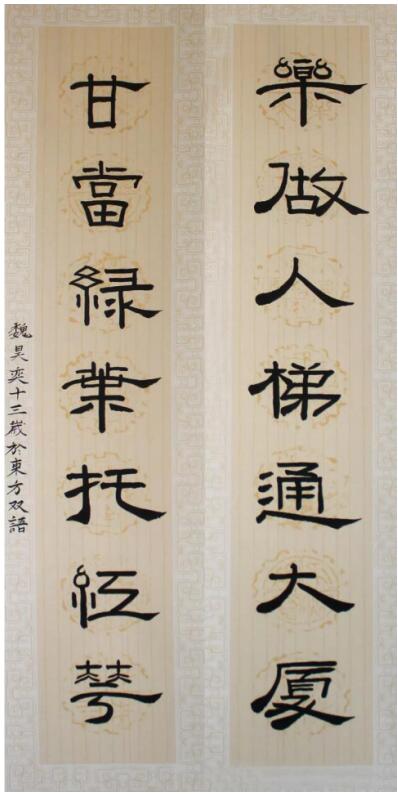 樂做人梯通大厦
甘當緑葉托紅花
魏昊奕十三歲於東方双語